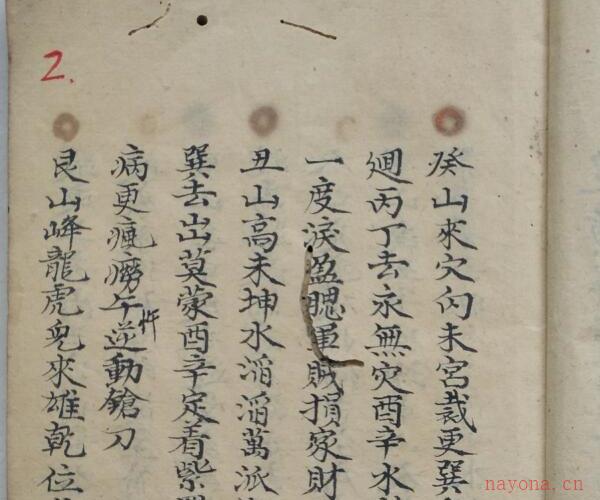 2.
癸山來穴向未宮裁更巽
廻丙丁去永無灾酉辛水
一度淚盈腮軍賊損家財
丑山高未坤水滔滔萬派
巽去出莫蒙酉辛定着紫
病更瘋癆午逆動鎗刀
忤
艮山峰龍虎兌來雄乾位
nayona.cn